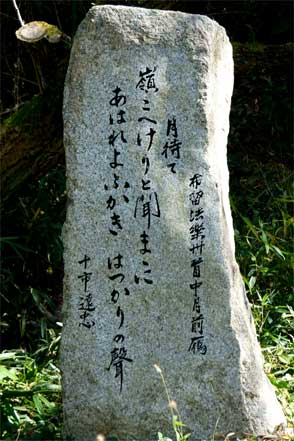 布留法樂卅首中月前鴈
月待て
嶺こへけりと聞まゝに
あはれよふかき はつかりの聲
十市遠忠